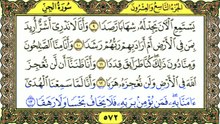 الجزء التاسع والعشرون سورة الجن
يستمع الآن يجد له شهابا رصدا ٩ وأنا لا ندري أشر أريد
بمن في الأرض أم أراد بهم ربهم رشدا ١٠ وأنا منا الصالحون
ومنا دون ذلك كنا طرائق قددا ١١ وأنا ظننا أن لن نعجز الله
في الأرض ولن نعجزه هربا ١٢ وأنا لما سمعنا الهدى
ءامنا به فمن يؤمن بربه فلا يخاف بخسا ولا رهقا ١٣
٥٧٢